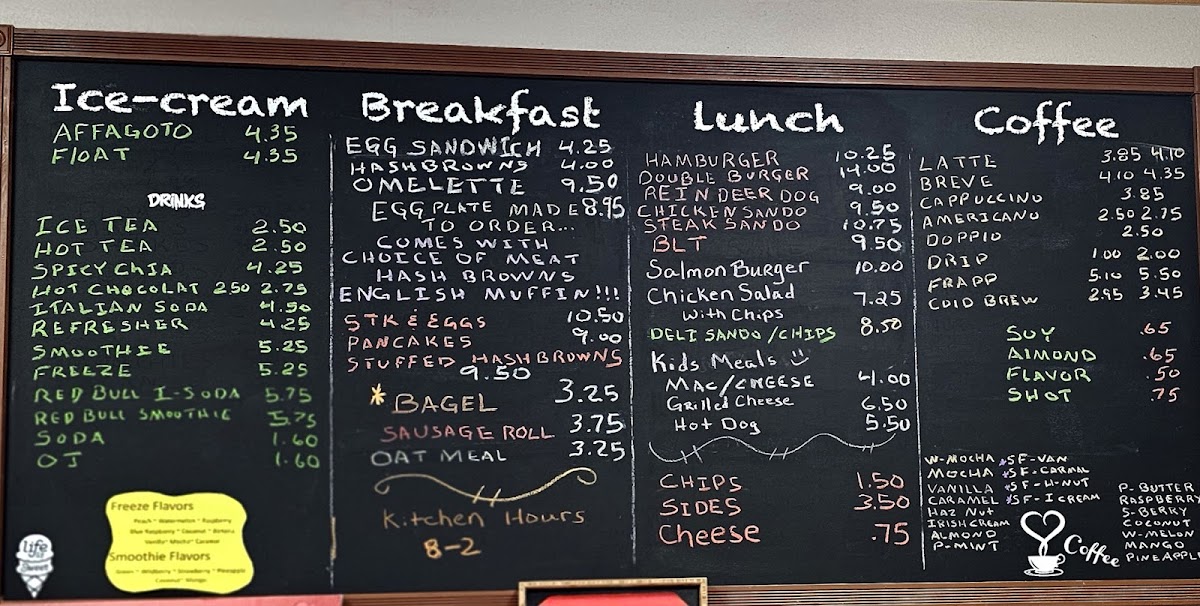 Ice-cream
AFFAGOTO 4.35
FLOAT 4.35
DRINKS
ICE TEA 2.50
HOT TEA 2.50
SPICY CHIA 4.25
HOT CHOCOLAT 2.50 2.75
ITALIAN SODA 4.50
REFRESHER 4.25
SMOOTHIE 5.25
FREEZE 5.25
RED BULL I-SODA 5.75
RED BULL SMOOTHIE 5.75
SODA 1.60
OJ 1.60
Freeze Flavors
Peach * Watermelon * Raspberry
Blue Raspberry * Coconut * Banana
Vanilla* Mocha* Caramel
Smoothie Flavors
Green * Wildberry * Strawberry * Pineapple
Coconut* Mango
life
is
Sweet
Breakfast
EGG SANDWICH 4.25
HASHBROWNS 4.00
OMELETTE 9.50
EGG PLATE MADE 8.95
TO ORDER...
COMES WITH
CHOICE OF MEAT
HASH BROWNS
ENGLISH MUFFIN!!!
STK & EGGS 10.50
PANCAKES 9.00
STUFFED HASHBROWNS
9.50
* BAGEL 3.25
SAUSAGE ROLL 3.75
OAT MEAL 3.25
Kitchen Hours
8-2
Lunch
HAMBURGER 10.25
DOUBLE BURGER 14.00
REINDEER DOG 9.00
CHICKEN SANDO 9.50
STEAK SANDO 10.75
BLT 9.50
Salmon Burger 10.00
Chicken Salad 7.25
with Chips
DELI SANDO/CHIPS 8.50
Kids Meals
MAC/CHEESE 4.00
Grilled Cheese 6.50
Hot Dog 5.50
CHIPS 1.50
SIDES 3.50
Cheese .75
Coffee
LATTE 3.85 4.10
BREVE 4.10 4.35
CAPPUCCINO 3.85
AMERICANO 2.50 2.75
DOPPIO 2.50
DRIP 1.00 2.00
FRAPP 5.10 5.50
COLD BREW 2.95 3.45
SOY .65
ALMOND .65
FLAVOR .50
SHOT .75
W-MOCHA *SF-VAN
MOCHA *SF-CARMAL
VANILLA *SF-H-NUT
CARAMEL *SF-I CREAM
HAZ NUT
IRISH CREAM
ALMOND
P-MINT
P-BUTTER
RASPBERRY
S-BERRY
COCONUT
W-MELON
MANGO
PINEAPPLE
Coffee